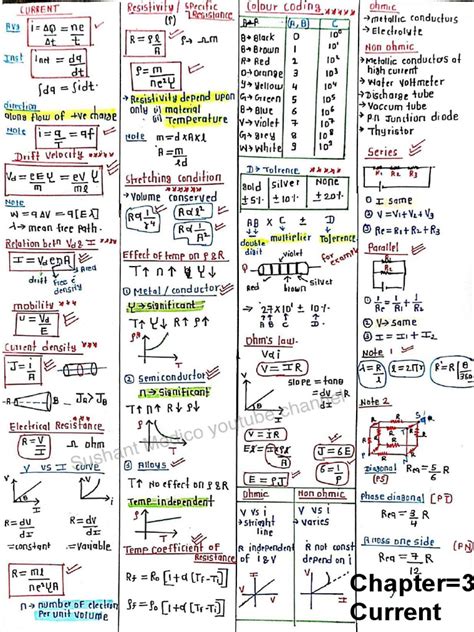 CURRENT
Avg I = ΔQ/Δt = ne/t
Inst Inst = dq/dt
∫dq = ∫idt
direction
along flow of +ve charge
Note i = q/T = qf
Drift Velocity
Vd = eEτ/m = eVτ/ml
Note
W = qΔV = q[Eλ]
λ → mean free path
Relation betn Vd & I
I = VdenA
Area
drift
free e density
mobility
u = Vd/E
Current density
J = i/A
JA > JB
Electrical Resistance
R = V/I Ω ohm
V vs I curve
R = dV/dI
R = dV/dI
=constant
=variable
R = ml/ne²τA
n → number of electron
Per unit volume
Resistivity / specific Resistance
(ρ)
R = ρl/A
ρ → Ω m
ρ = m/ne²τ
→ Resistivity depend upon
only (i) material
(ii) Temperature
Note m = d×A×l
A = m/ld
Stretching condition
→ Volume conserved
R α 1/r⁴
R α l²
R α 1/A²
Effect of temp on ρ & R
T↑ n↑ τ↓
① Metal / conductor
τ → significant
T↑ τ↓ R↑ ρ↑
② Semiconductor
n → Significant
n↑ → R↓ ρ↓
③ Alloys
T↑ No effect on ρ & R
Temp independent
Temp Coefficient of
Resistance
Rf = R0 [1+α(Tf-Ti)]
ρf = ρ0 [1+α(Tf-Ti)]
Colour coding
B → Black 0 10⁰
B → Brown 1 10¹
R → Red 2 10²
O → Orange 3 10³
Y → Yellow 4 10⁴
G → Green 5 10⁵
B → Blue 6 10⁶
V → Violet 7 10⁷
G → Grey 8 10⁸
W → White 9 10⁹
D → Tolerence
Gold Silver None
±5% ±10% ±20%
AB × C ± D
double digit
multiplier
Tolerence
violet
for example
→ 27×10¹ ± 10%
AB C D
Ohm's law
V α i
V = IR
slope = tanθ
= dV/dI = R
V = IR
J = σE
E = ρJ
σ = 1/ρ
Ohmic Non ohmic
V vs i
→ straight
line
V vs I
→ varies
R independent
of I & V
R not const
depend on i
ohmic
→ metallic conductors
→ Electrolyte
Non ohmic
→ Metallic conductors of
high current
→ Water Voltmeter
→ Discharge tube
→ Vaccum tube
→ P.n Junction diode
→ Thyristor
Series
① I same
② V = V1+V2+V3
③ Re = R1+R2+R3
Parallel
① 1/Re = 1/R1 + 1/R2
② V → same
③ I = I1 + I2
Note 1
λ = R/l
l = 2πr
R = R[θ/360]
Note 2
Diagonal (PS)
Req = 5/6 R
Phase diagonal (PT)
Req = 3/4 R
Across one side
(PN)
Req = 7/12 R
Sushant Medico youtube channel
Chapter=3
Current